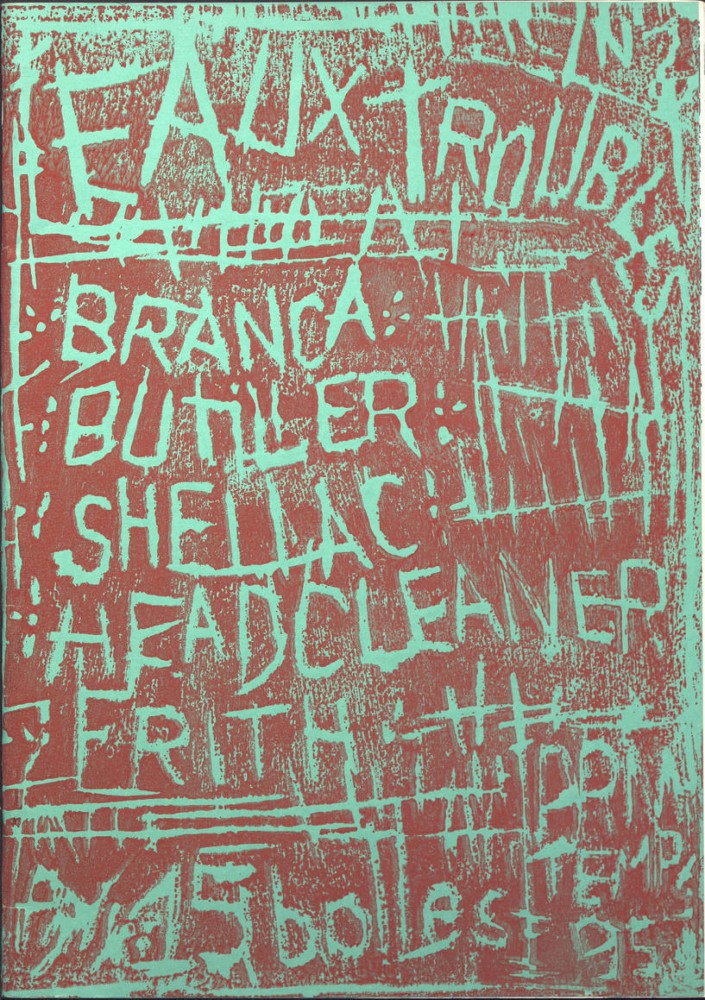 EAUX TROUBLES
BRANCA:
BUTLLER:
SHELLAC:
HEADCLEANER
FRITH
15 bolles
TEMPS
DE